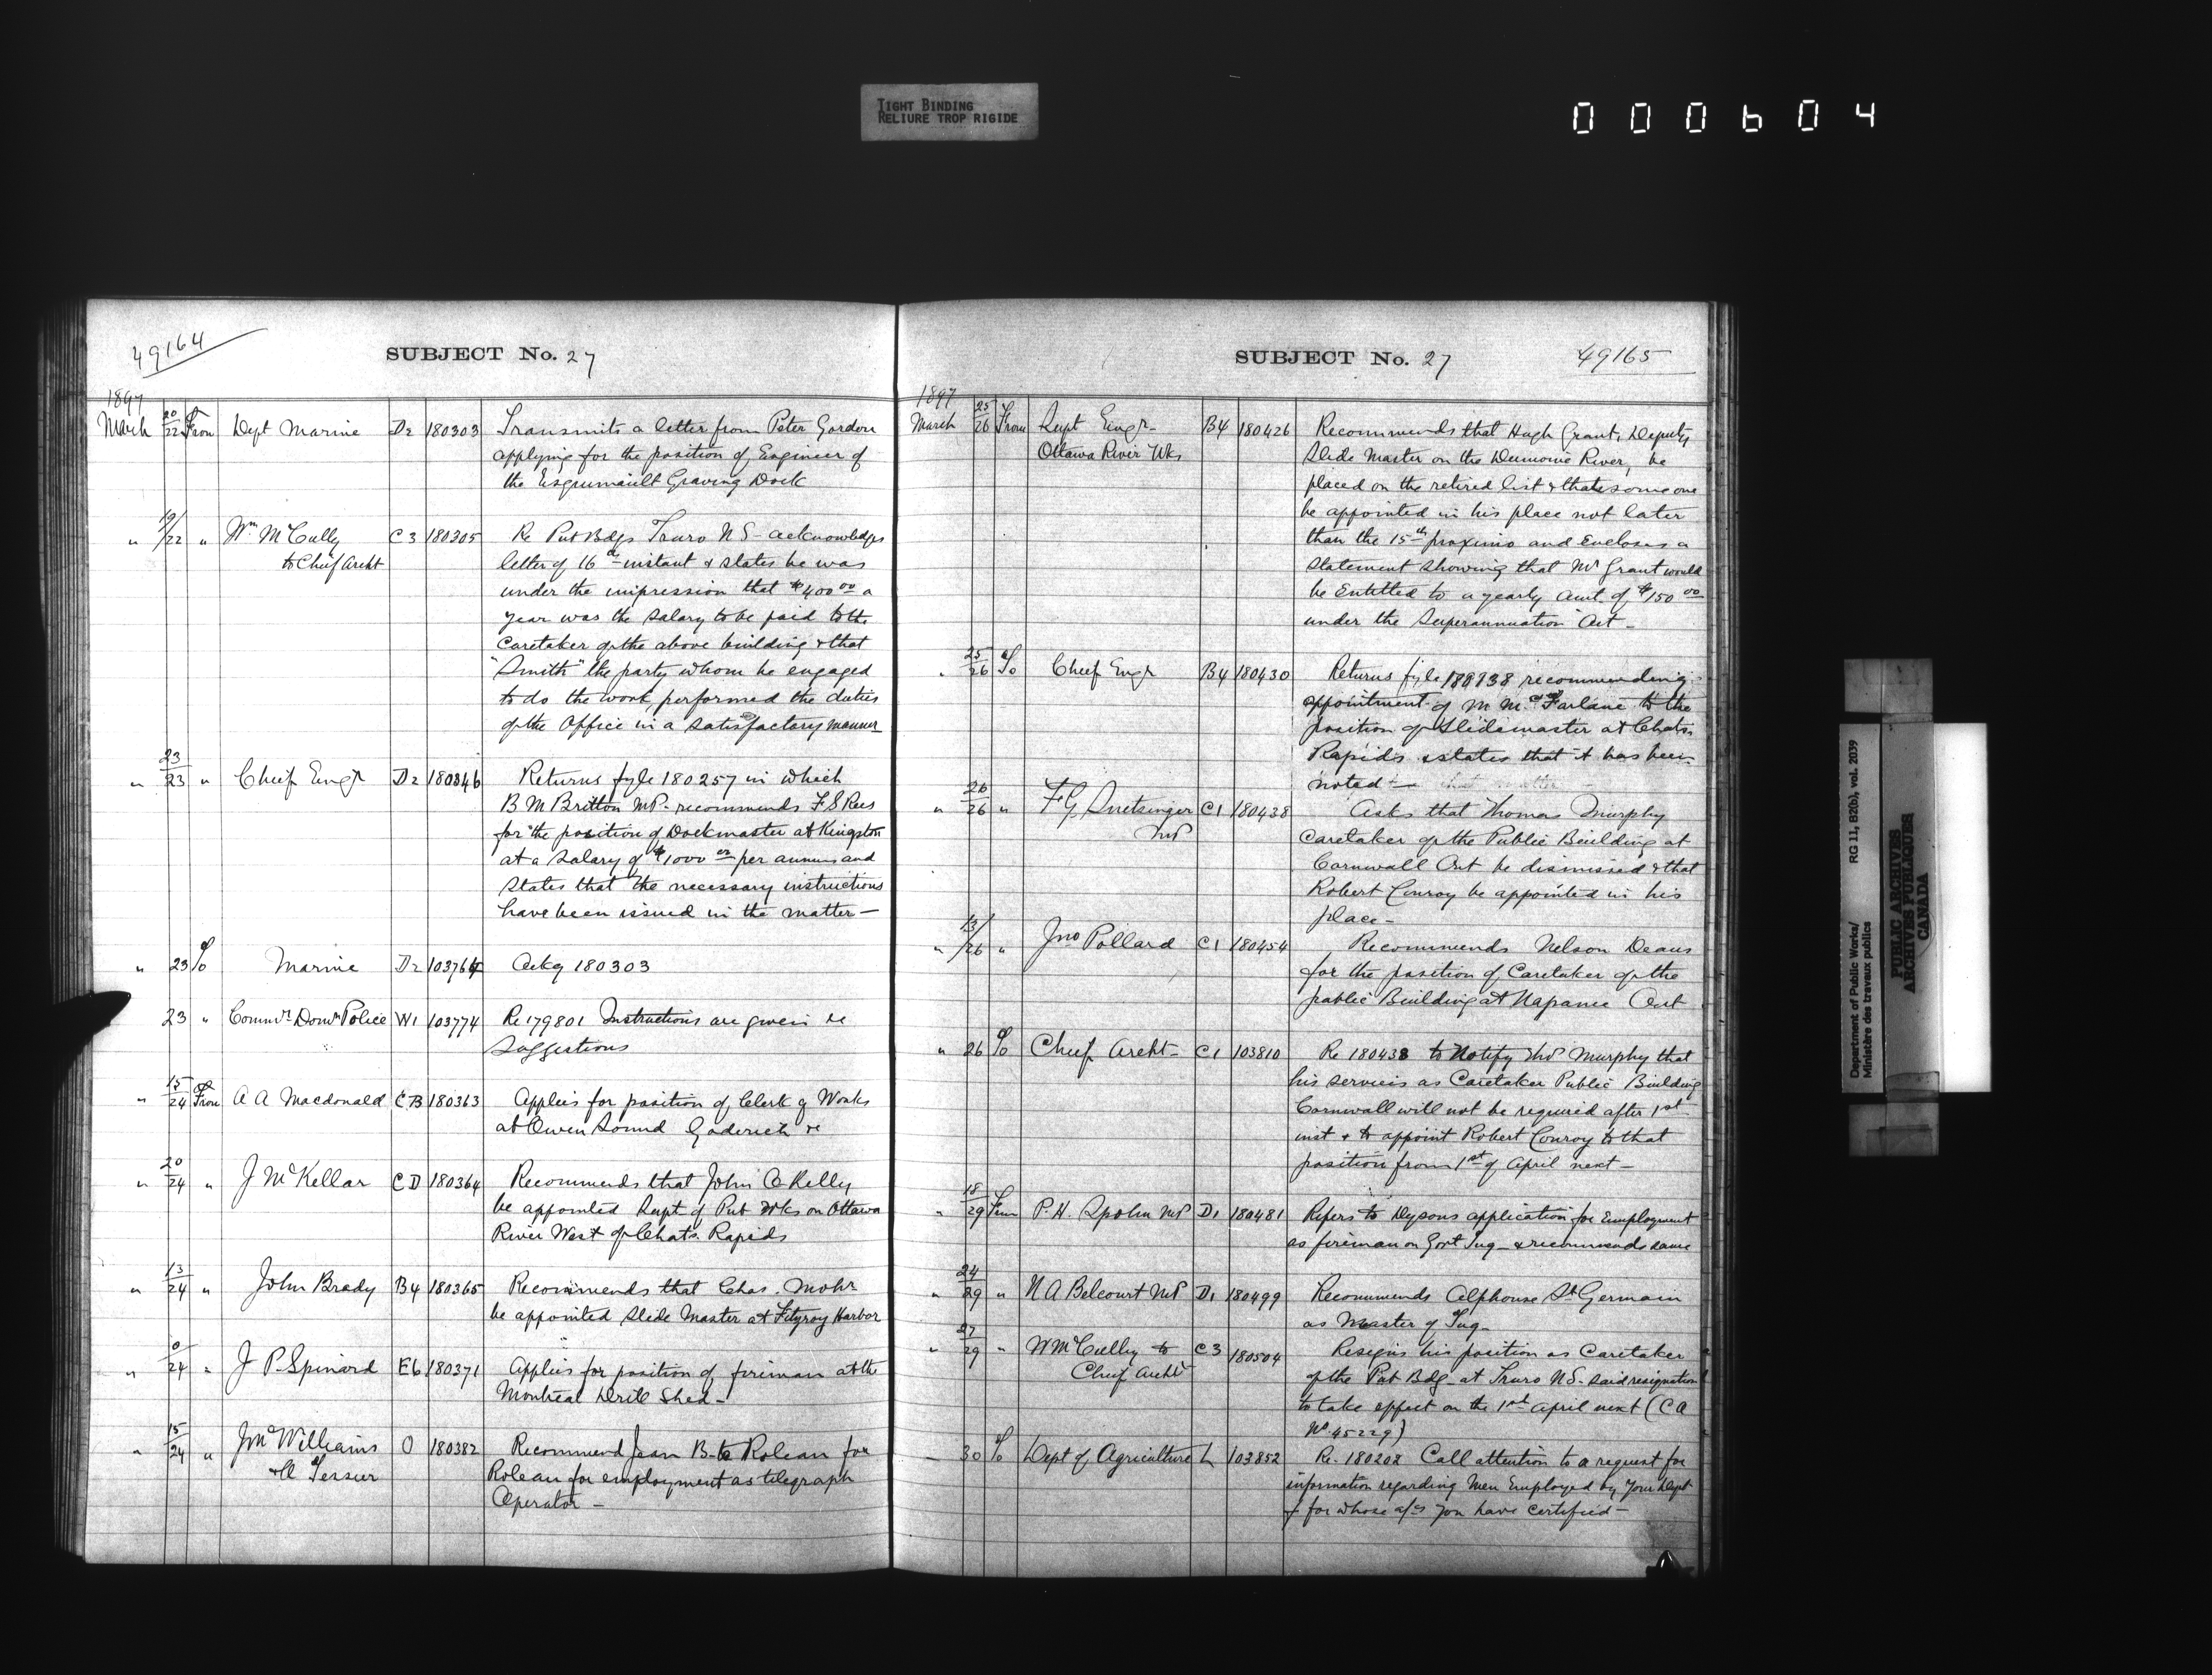 TIGHT BINDING
RELIURE TROP RIGIDE
000604
49164
SUBJECT No. 27
1897
March 20/22 From Dept Marine D2 180303 Transmits a letter from Peter Gordon
applying for the position of Engineer of
the Esquimault Graving Dock
" 19/22 " Wm McCully C3 180305 Re Pub Bdgs Truro N S - acknowledges
to Chief Archt letter of 16th instant & states he was
under the impression that $400 00 a
year was the salary to be paid to the
Caretaker of the above building & that
"Smith" the party whom he engaged
to do the work, performed the duties
of the Office in a satisfactory manner
" 23/23 " Chief Engr D2 180346 Returns fyle 180257 in which
B M Britton MP - recommends F S Rees
for the position of Dockmaster at Kingston
at a salary of $1000 00 per annum and
states that the necessary instructions
have been issued in the matter -
" 23 To Marine D2 103764 Ackg 180303
23 " Commr Domn Police W1 103774 Re 179801 Instructions are given re
Suggestions
" 15/24 From A A Macdonald CB 180363 Applies for position of Clerk of Works
at Owen Sound Goderich &c
" 20/24 " J McKellar CD 180364 Recommends that John O Kelly
be appointed Supt of Pub Wks on Ottawa
River West of Chats Rapids
" 13/24 " John Brady B4 180365 Recommends that Chas. Mohr
be appointed Slide Master at Fitzroy Harbor
" 0/24 " J P Spinard E6 180371 Applies for position of fireman at the
Montreal Drill Shed -
" 15/24 " J McWilliams O 180382 Recommend Jean B-te Roleau for
& A Tessier Roleau for employment as telegraph
Operator -
SUBJECT No. 27
49165
1897
March 25/26 From Supt Engr - B4 180426 Recommends that Hugh Grant, Deputy
Ottawa River Wks Slide Master on the Dumoine River, be
placed on the retired list & that someone
be appointed in his place not later
than the 15th proximo and encloses a
statement showing that Mr Grant would
be entitled to a yearly amt. of $150 00
under the Superannuation Act -
" 25/26 To Chief Engr B4 180430 Returns fyle recommending
appointment of M McFarlane to the
position of Slidemaster at Chats
Rapids & states that it has been
noted -
" 26/26 " F G Snetsinger C1 180438 Asks that Thomas Murphy
MP Caretaker of the Public Building at
Cornwall Ont be dismissed & that
Robert Conroy be appointed in his
place -
" 13/26 " Jno Pollard C1 180454 Recommends Nelson Deans
for the position of Caretaker of the
public Building at Napanee Ont
" 26 To Chief Archt - C1 103810 Re 180438 to Notify Mr Murphy that
his services as Caretaker Public Building
Cornwall will not be required after 1st
inst & to appoint Robert Conroy to that
position from 1st of April next -
" 18/29 From P. H. Spohn MP D1 180481 Refers to Dysons application for Employment
as fireman on Govt Tug - & recommends same
" 24/29 " N A Belcourt MP D1 180499 Recommends Alphonse St Germain
as Master of Tug -
" 27/29 " W McCulley to C3 180504 Resigns his position as Caretaker
Chief Archt of the Pub Bdg - at Truro N S - said resignation
to take effect on the 1st April next (C A
No 45229)
30 To Dept of Agriculture L 103852 Re. 180202 Call attention to a request for
information regarding Men Employed by Your Dept
& for whose a/cs you have certified -
Department of Public Works/ RG 11, B2(b), vol. 2039
Ministère des travaux publics
PUBLIC ARCHIVES
ARCHIVES PUBLIQUES
CANADA